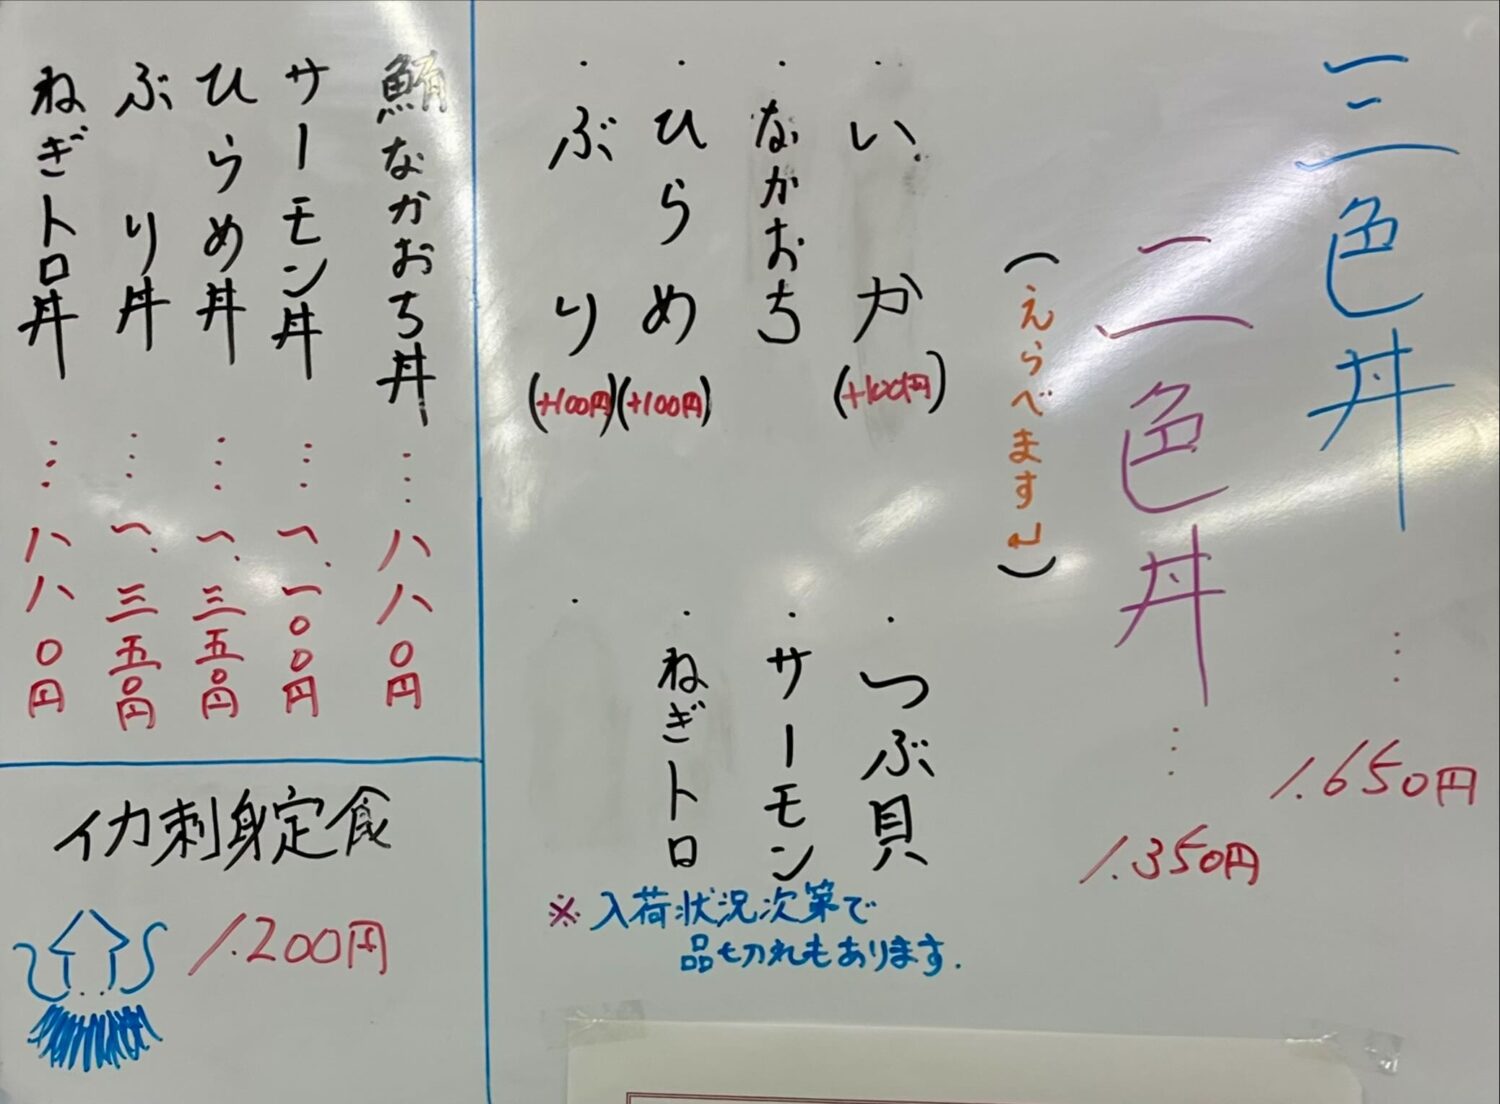 三色丼 … 1.650円
二色丼 … 1.350円
(えらべます〜)
・いか(+100円)
・なかおち
・ひらめ(+100円)
・ぶり(+100円)
・つぶ貝
・サーモン
・ねぎトロ
・
※入荷状況次第で
品切れもあります.
鮪なかおち丼…八八〇円
サーモン丼…一.一〇〇円
ひらめ丼…一.三五〇円
ぶり丼…一.三五〇円
ねぎトロ丼…八八〇円
イカ刺身定食
1.200円